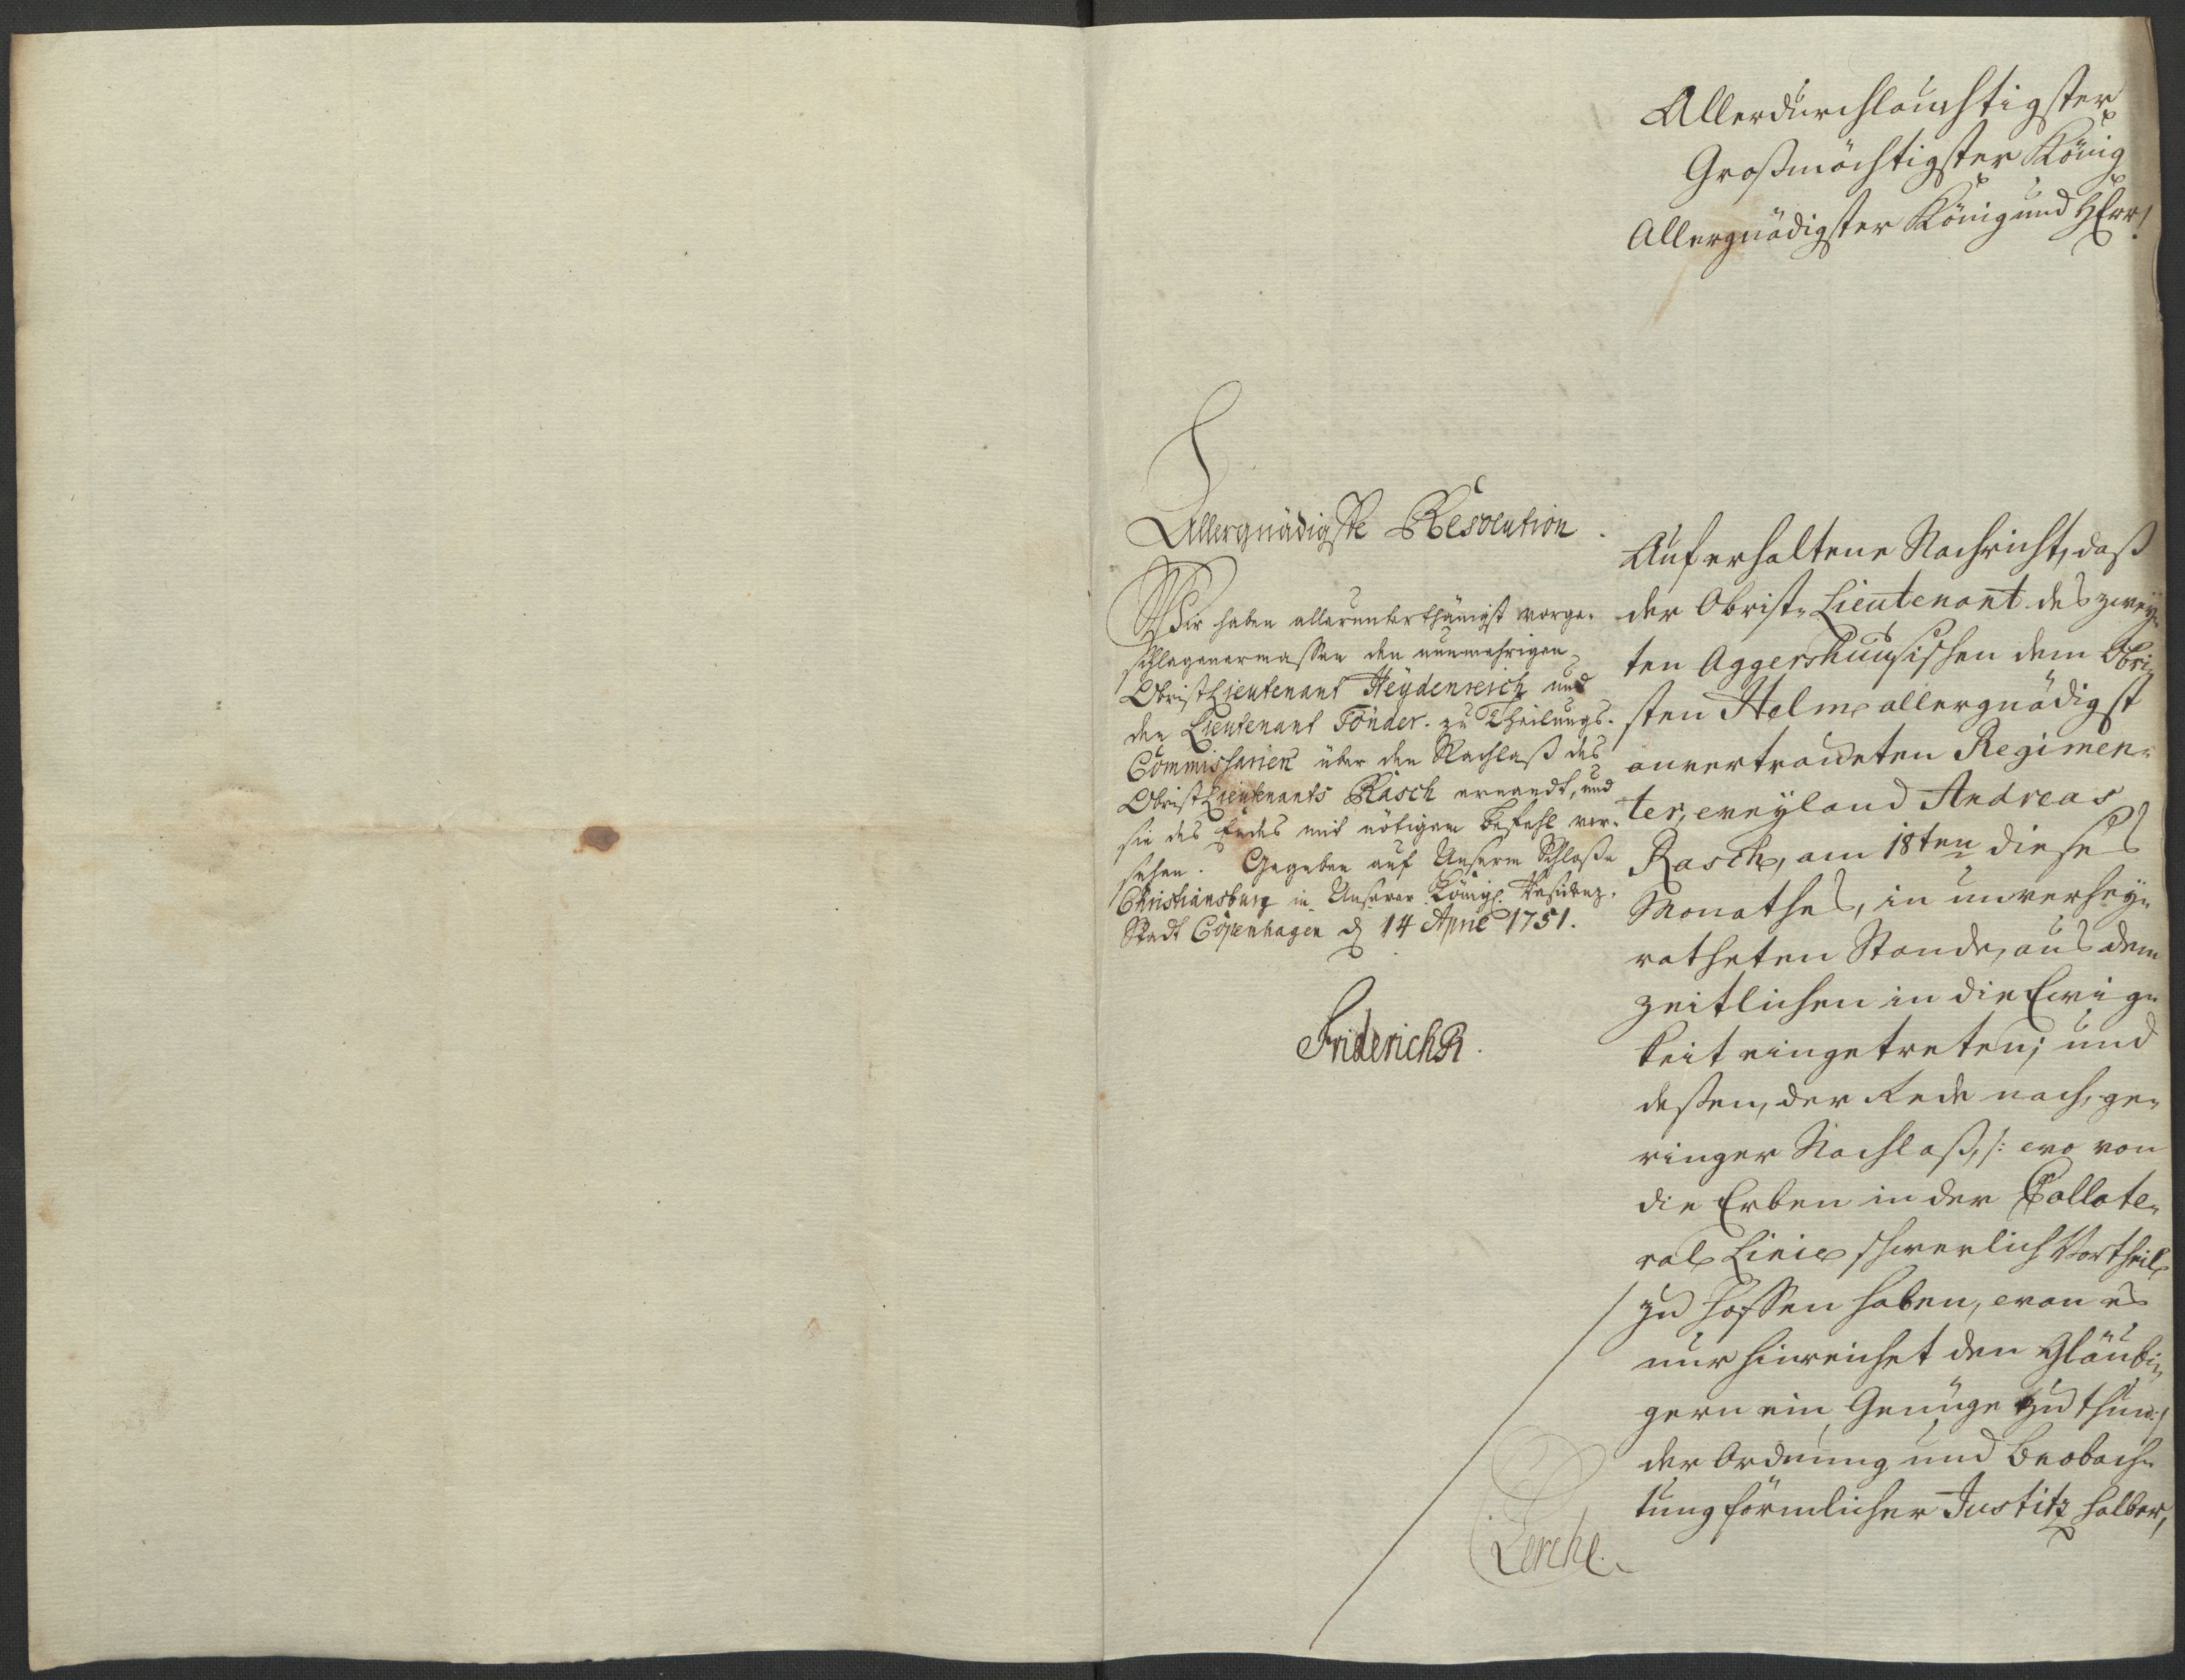 Allerdurchlauchtigster
Großmächtigster König
Allergnädigster König und HErr!
Allergnädigste Resolution.
Wir haben allerunterthänigst vorge-
schlagenermassen den nunmehrigen
ObristLieutenant Heydenreich und
den Lieutenant Tönder zu Theilungs-
Commissarien über den Nachlaß des
ObristLieutenants Rasch ernandt, und
sie des Endes mit nötigem Befehl ver-
sehen. Gegeben auf Unserm Schloße
Christiansburg in Unserer Königl. Residenz-
Stadt Copenhagen d 14 April 1751.
FriderichR.
Auf erhaltene Nachricht, daß
der Obrist-Lieutenant des zwey-
ten Aggershuusischen dem Obri-
sten Helm allergnädigst
anvertraueten Regimen-
ter, weyland Andreas
Rasch, am 18ten dieses
Monathes, in unverhey-
ratheten Stande, aus dem
zeitlichen in die Ewig-
keit eingetreten; und
deßen, der Rede nach, ge-
ringer Nachlaß, /: wo von
die Erben in der Collate-
ral Linie schwerlich Vortheil
zu hoffen haben, wan es
nur hinreichet den Gläubi-
gern ein Genüge zu thun :/
der Ordnung und Beobach-
tung förmlicher Justitz halber,
Lerche.